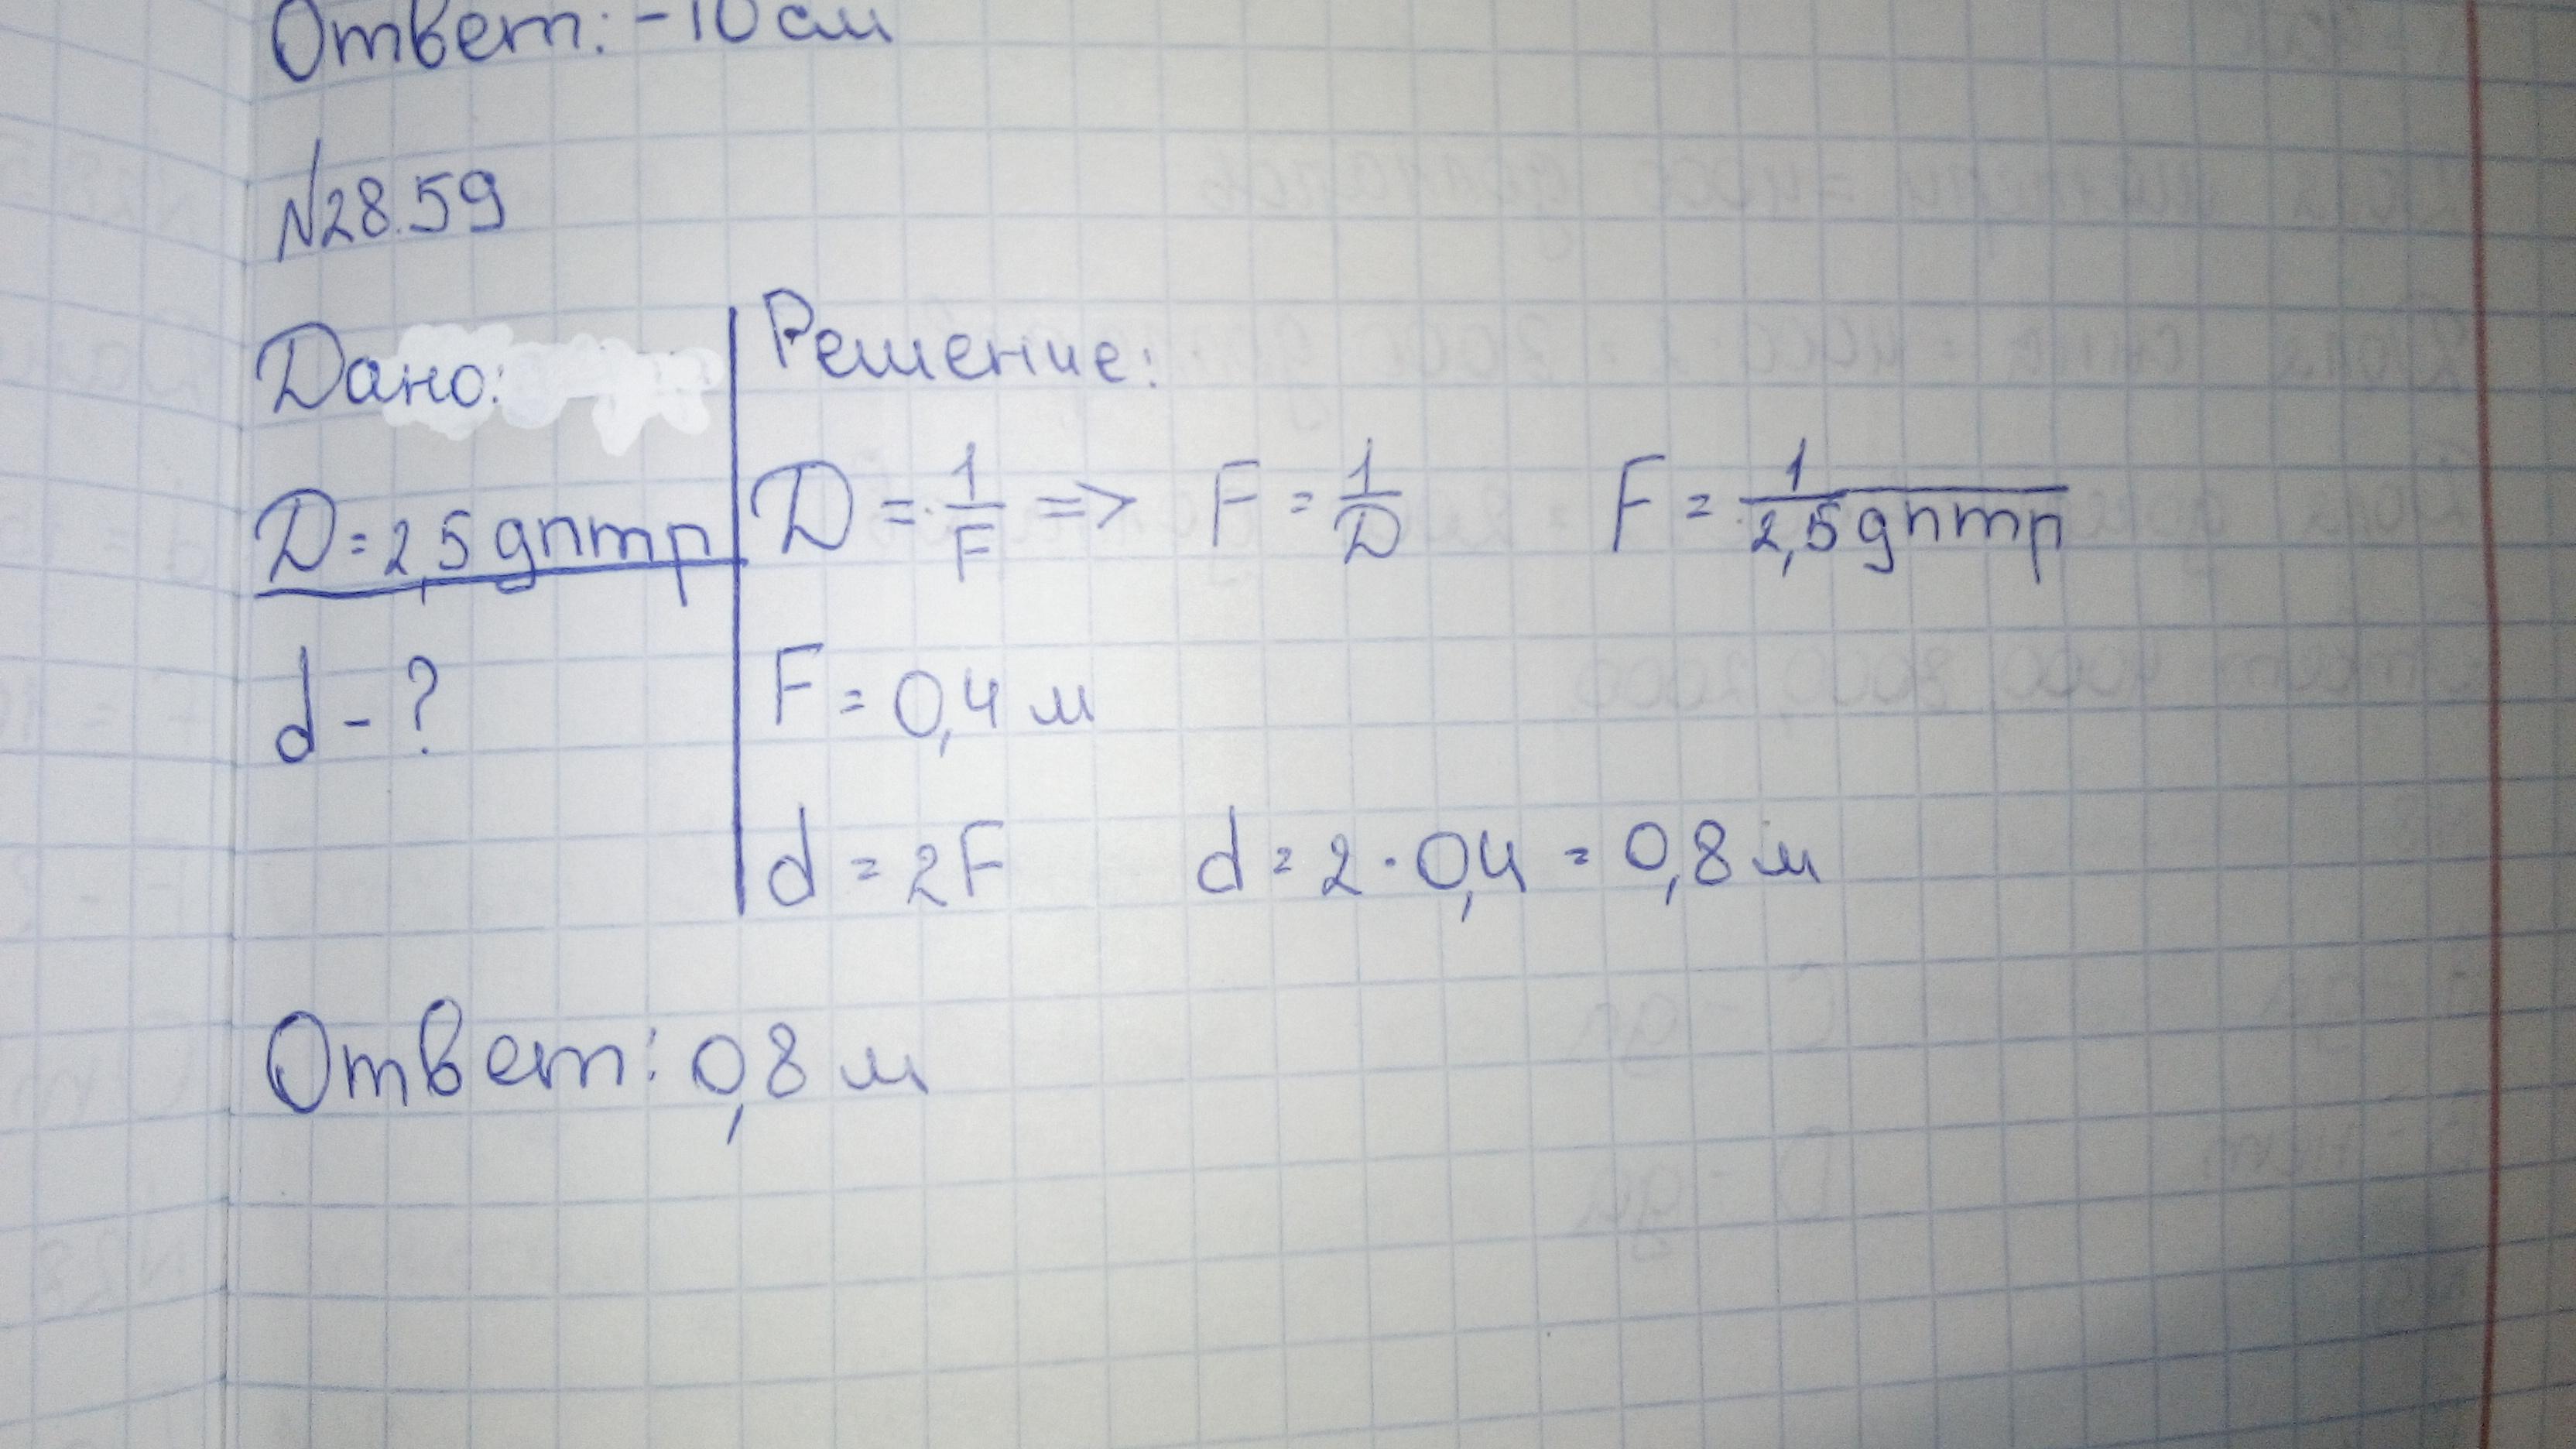 Ответ: -10 см
№28.59
Дано:
D = 2,5 дптр
d - ?
Решение:
D = 1/F => F = 1/D F = 1/2,5 дптр
F = 0,4 м
d = 2F d = 2 · 0,4 = 0,8 м
Ответ: 0,8 м